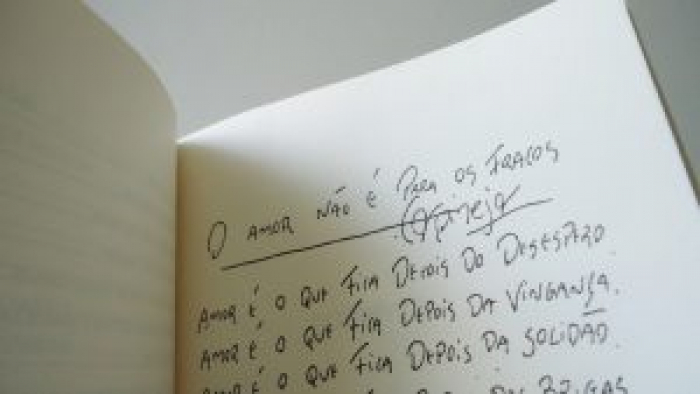 O AMOR NÃO É PARA OS FRACOS
Carpinejar
AMOR É O QUE FICA DEPOIS DO DESESPERO
AMOR É O QUE FICA DEPOIS DA VINGANÇA.
AMOR É O QUE FICA DEPOIS DA SOLIDÃO.
AMOR É O QUE FICA DEPOIS DAS BRIGAS